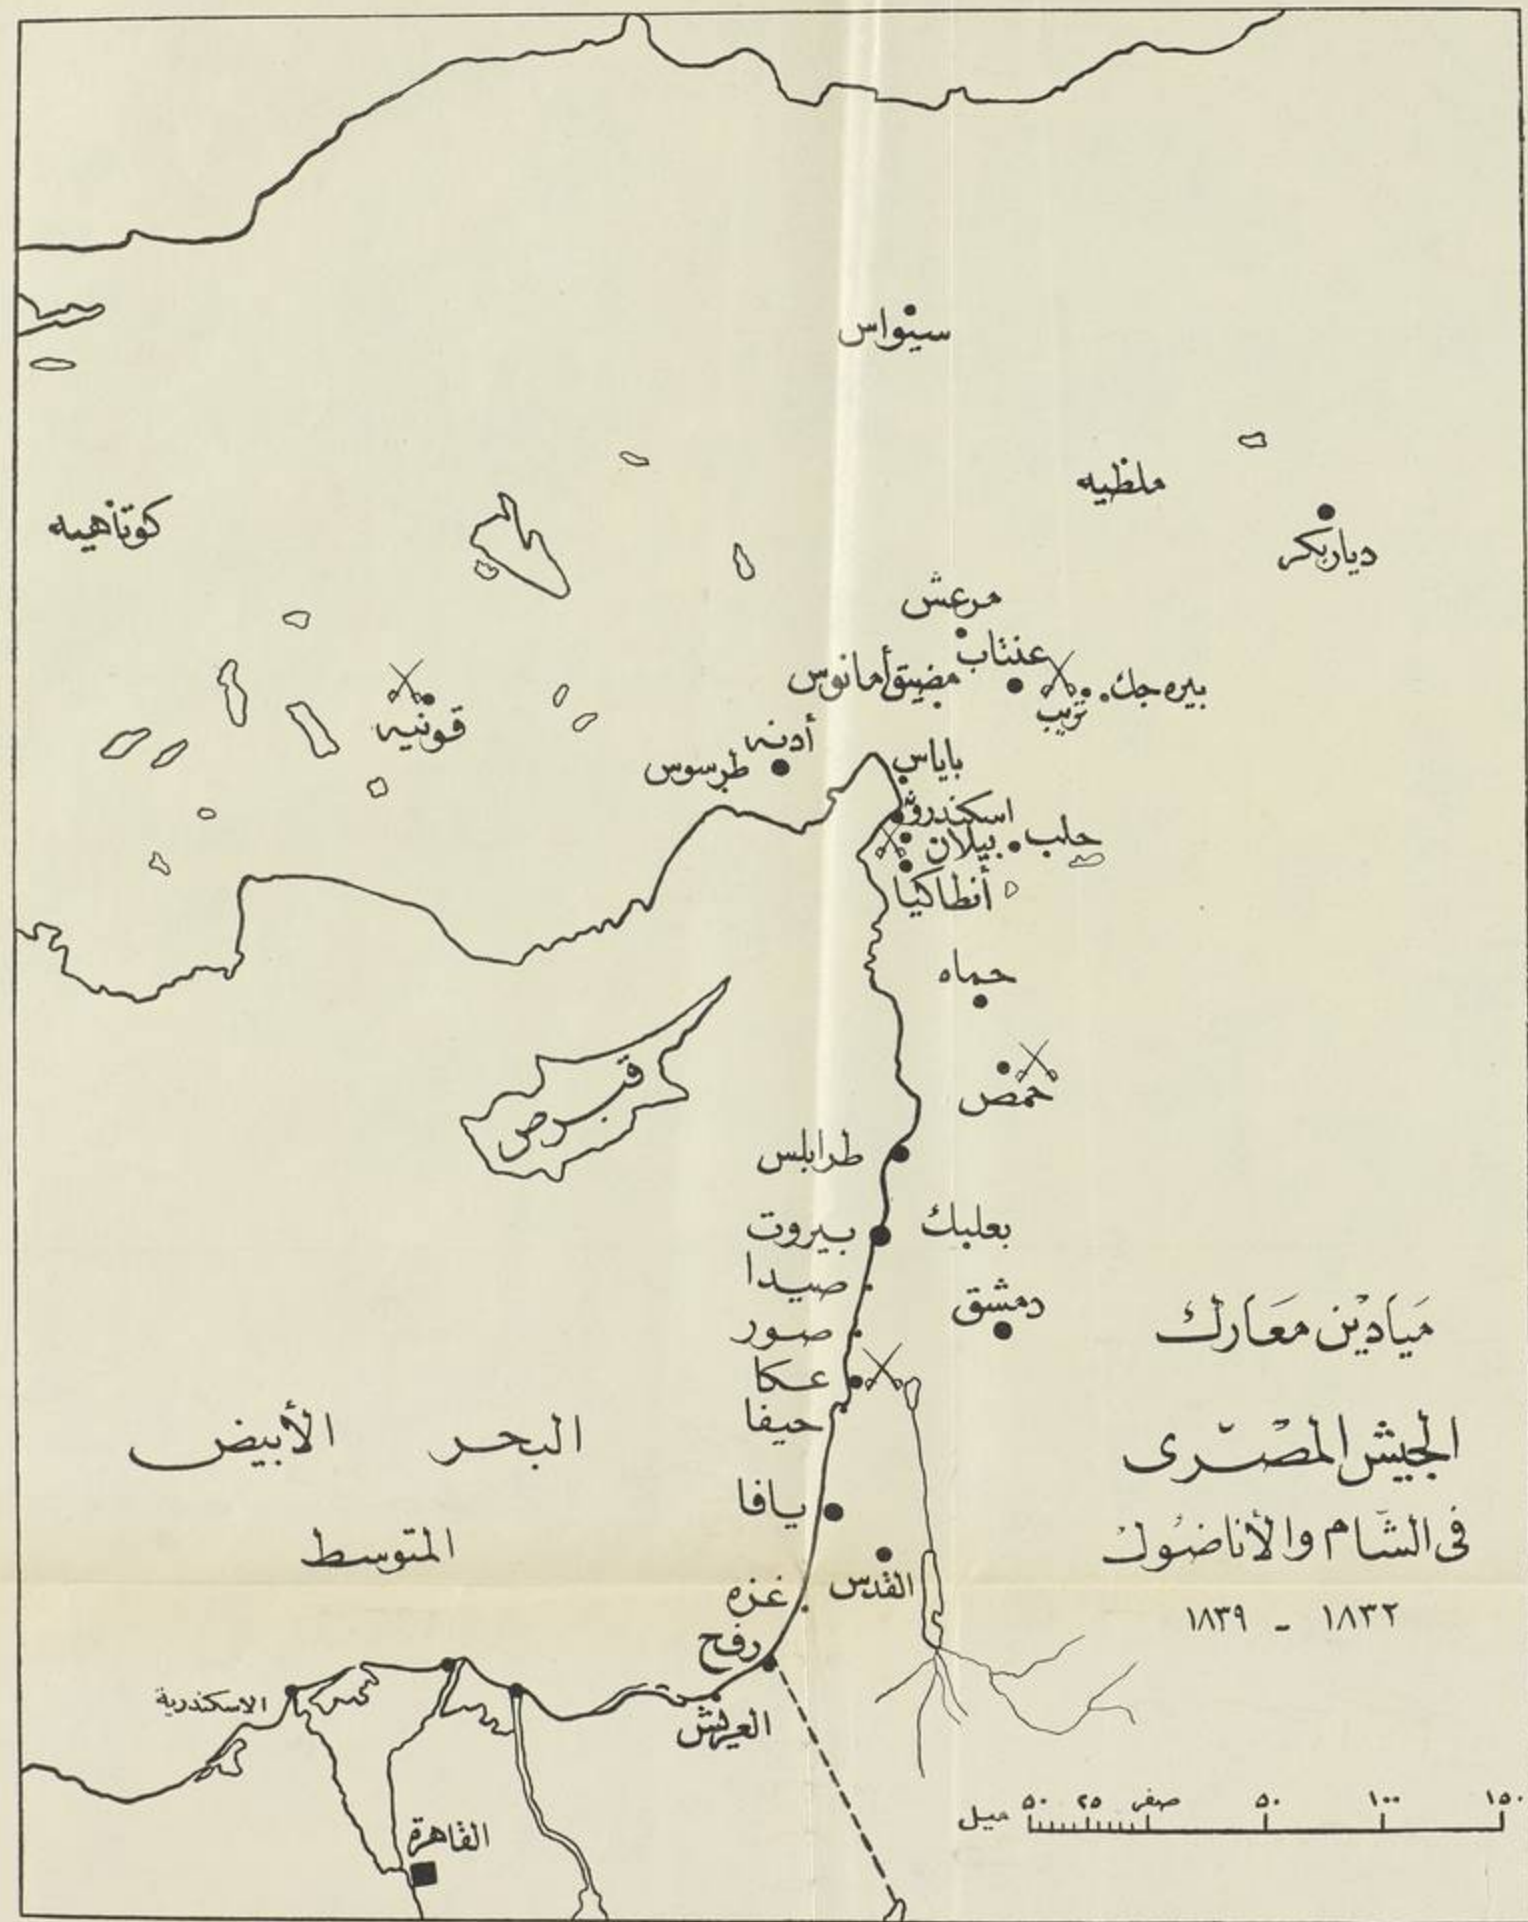 سيواس
ملطيه
كوتاهيه
دياربكر
مرعش
عنتاب
مضيق أمانوس
بيره جك
نزيب
قونيه
أدنه
طرسوس
باياس
اسكندرونة
بيلان
حلب
أنطاكيا
حماه
حمص
قبرص
طرابلس
بيروت
بعلبك
صيدا
دمشق
صور
عكا
حيفا
يافا
القدس
غزه
رفح
العريش
الاسكندرية
القاهرة
البحر الأبيض
المتوسط
مَيادين مَعَارك
الجيش المصْرى
فى الشَّام والأناضُول
١٨٣٢ - ١٨٣٩
ميل ٥٠ ٢٥ صفر ٥٠ ١٠٠ ١٥٠